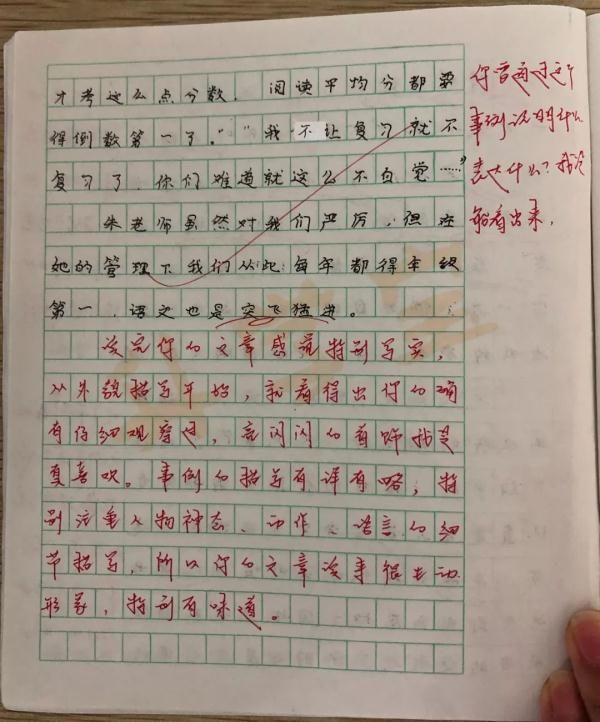 才考这么点分数，阅读平均分都要
得倒数第一了。”“我不让复习就不
复习了，你们难道就这么不自觉……”
朱老师虽然对我们严厉，但在
她的管理下我们从此每年都得年级
第一，语文也是突飞猛进。
读完你的文章感觉特别写实，
从外貌描写开始，就看得出你的确
有仔细观察过，亮闪闪的首饰我是
更喜欢。事例的描写有详有略，特
别注重人物神态、动作、语言的细
节描写，所以你的文章读来很生动
形象，特别有味道。
你曾通过这个
事例说明什么
表达什么？我没
能看出来，